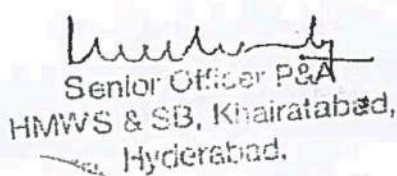 Senior Officer P&A
HMWS & SB, Khairatabad,
Hyderabad.